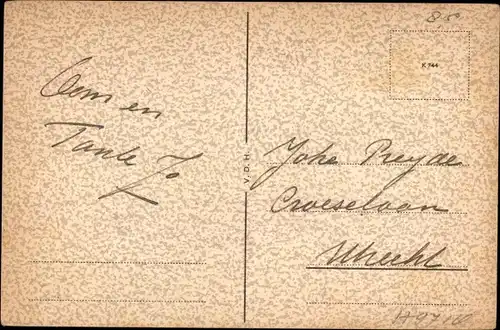 8,50
K 744
Oom en
Tante Jo
V. D. H.
Joha Preyde
Croeselaan
Utrecht